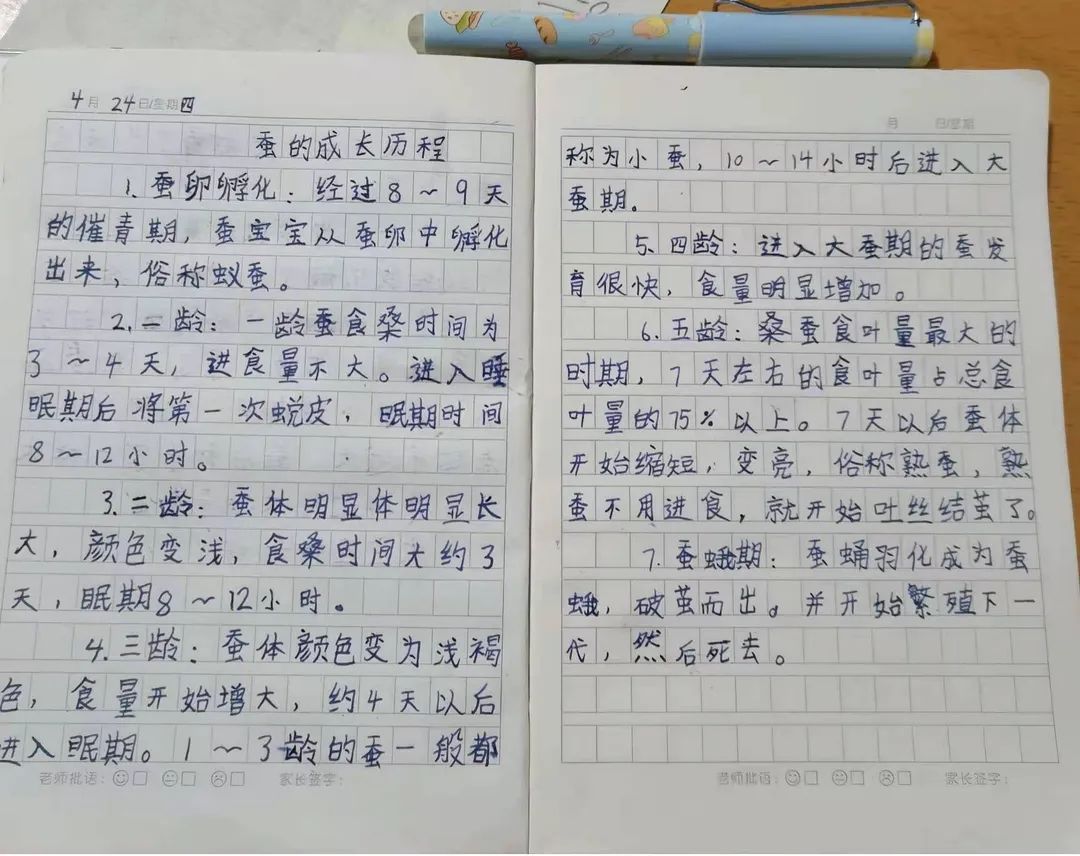 4月 24日/星期四
蚕的成长历程
1. 蚕卵孵化：经过8～9天
的催青期，蚕宝宝从蚕卵中孵化
出来，俗称蚁蚕。
2. 一龄：一龄蚕食桑时间为
3～4天，进食量不大。进入睡
眠期后将第一次蜕皮，眠期时间
8～12小时。
3. 二龄：蚕体明显体明显长
大，颜色变浅，食桑时间大约3
天，眠期8～12小时。
4. 三龄：蚕体颜色变为浅褐
色，食量开始增大，约4天以后
进入眠期。1～3龄的蚕一般都
老师批语：
家长签字：
月 日/星期
称为小蚕，10～14小时后进入大
蚕期。
5. 四龄：进入大蚕期的蚕发
育很快，食量明显增加。
6. 五龄：桑蚕食叶量最大的
时期，7天左右的食叶量占总食
叶量的75%以上。7天以后蚕体
开始缩短，变亮，俗称熟蚕，熟
蚕不用进食，就开始吐丝结茧了。
7. 蚕蛾期：蚕蛹羽化成为蚕
蛾，破茧而出。并开始繁殖下一
代，然后死去。
老师批语：
家长签字：